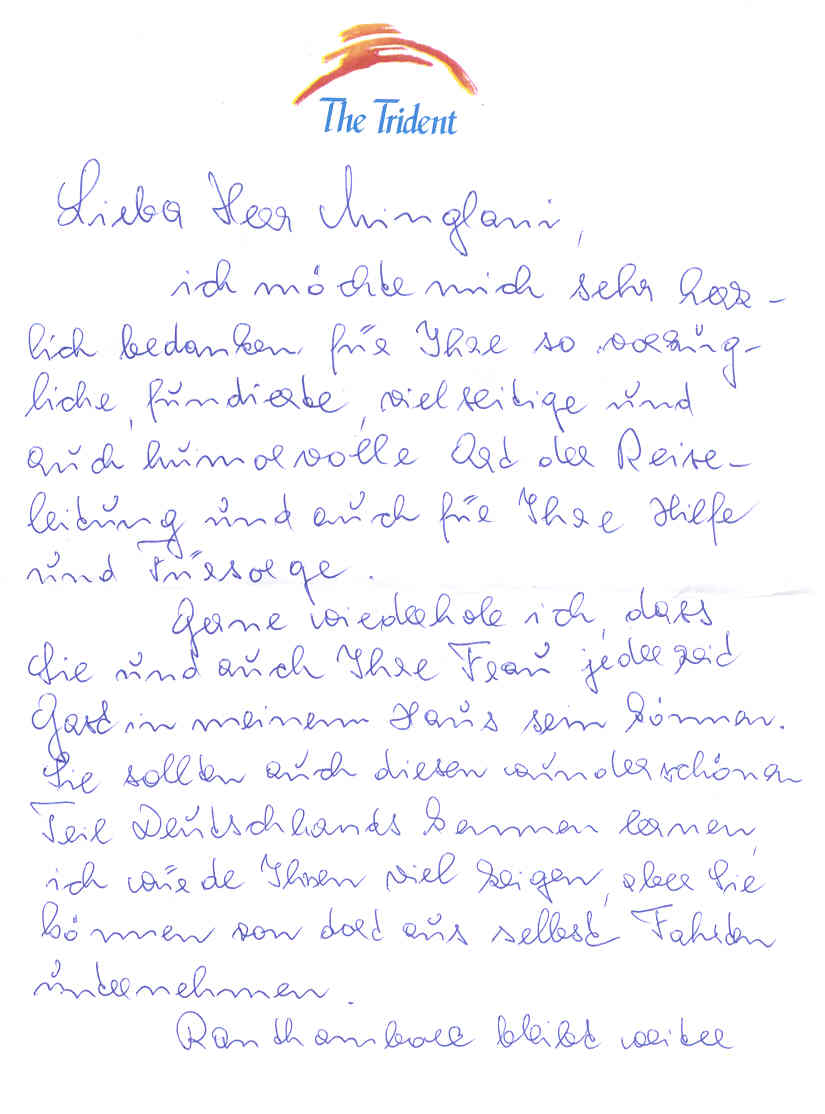 The Trident
Lieber Herr Minglani,
ich möchte mich sehr herz-
lich bedanken für Ihre so vorzüg-
liche, fundierte, vielseitige und
auch humorvolle Art der Reise-
leitung und auch für Ihre Hilfe
und Fürsorge.
Gerne wiederhole ich, dass
Sie und auch Ihre Frau jederzeit
Gast in meinem Haus sein können.
Sie sollten auch diesen wunderschönen
Teil Deutschlands kennen lernen,
ich würde Ihnen viel zeigen, aber Sie
können von dort aus selbst Fahrten
unternehmen.
Ranthambore bleibt weiter